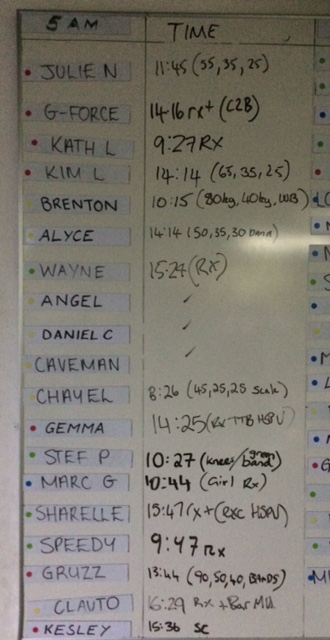 5 AM TIME
JULIE N 11:45 (55, 35, 25)
G-FORCE 14:16 rx+ (C2B)
KATH L 9:27 RX
KIM L 14:14 (65, 35, 25)
BRENTON 10:15 (80kg, 40kg,
ALYCE 14:14 (50, 35, 30 band)
WAYNE 15:24 (RX)
ANGEL ✓
DANIEL C ✓
CAVEMAN ✓
CHAYEL 8:26 (45, 25, 25 scale)
GEMMA 14:25 (Rx TTB HSPU)
STEF P 10:27 (knees/green band)
MARC G 10:44 (Girl Rx)
SHARELLE 15:47 rx+ (RXC HSPU)
SPEEDY 9:47 rx
GRUZZ 13:44 (90, 50, 40, BANDS)
CLAUTO 16:29 Rx + Bar MU
KESLEY 15:36 SC